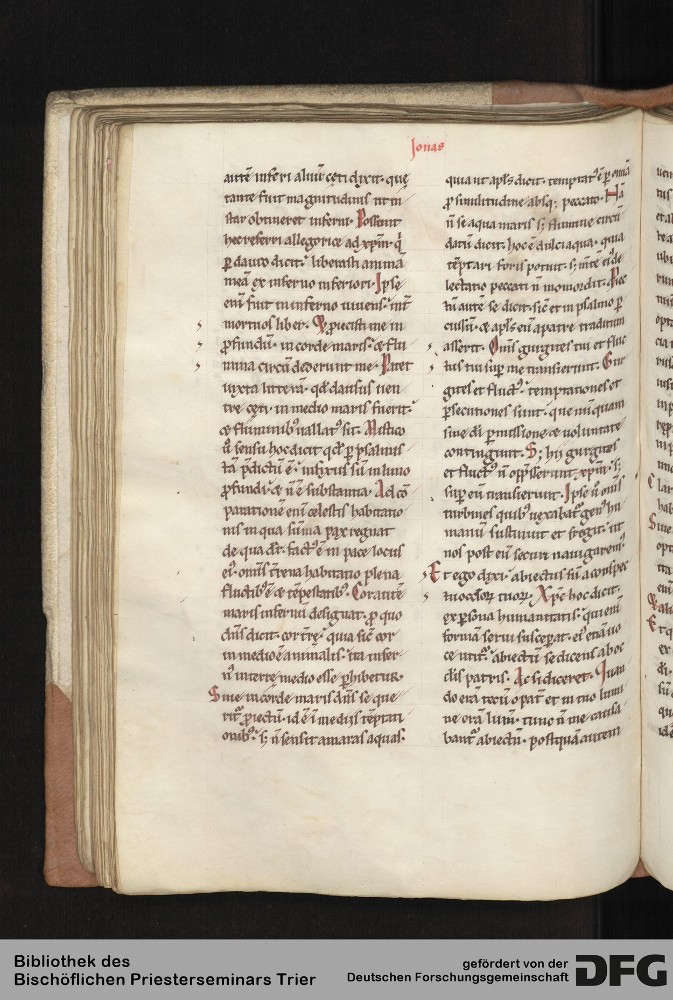 Jonas
autē inferi aluū cęti dixit · quę
tante fuit magnitudinis ut in
star obtineret inferni · Possunt
hec referri allegorice ad xp̄m · q̇
ꝑ dauid dicit · liberasti animā
meā ex inferno inferiori · Ipse
enī fuit in inferno uiuens · int̄
mortuos liber · Et ꝓiecisti me in
ꝓfundū · in corde maris · & flu
mina circūdederunt me · Patet
iuxta litterā · qd̄ clausus uen
tre cęti · in medio maris fuerit ·
& fluminib; uallatꝰ sit · Mistico
ū sensu hoc dicit qd̄ ꝑ psalmis
tā p̄dictū ē · infixus sū in limo
ꝓfundi · & n̄ ē substantia · Ad cō
parationē enī celestis habitatio
nis in qua sūma pax regnat
de qua dr̄ · factꝰ ē in pace locus
eiꝰ · omīs t̄rena habitatio plena
fluctibꝰ ē & tēpestatibꝰ · Cor autē
maris infernū designat · ꝓ quo
dn̄s dicit · cor tr̄ę · quia sic̄ cor
in medio ē animalis · ita infer
nꝰ in terrę medio esse ꝑhibetur ·
Siue in corde maris dn̄s se que
ritꝰ ꝓiectū · id ē ī medijs tēptati
onibꝰ · s; n̄ sensit amaras aquas ·
quia ut apl̄s dicit · temptatꝰ ē ꝑ omīa
ꝓ similitudine absq; peccato · Nā
n̄ se aqua maris s; flumine circū
datū dicit · hoc ē dulci aqua · quia
tēptari foris potuit · s; mēte eiꝰ de
lectatio peccati n̄ momordit · Hoc
tn̄ autē se dicit · sic̄ et in psalmo ꝑ
cussū · & apl̄s eū a patre traditum
asserit · Om̄s gurgites tui et fluc
tus tui suꝑ me transierunt · Gur
gites et fluctꝰ · temptationes et
ꝑsecutiones sunt · que nūquam
sine di ꝑmissione & uoluntate
contingunt · S; hij gurgites
et fluctꝰ n̄ opp̄sserunt xp̄m · s;
suꝑ eū transierunt · Ipse n̄ om̄s
turbines quibꝰ uexabatꝰ genꝰ hu
manū sustinuit et fregit · ut
nos post eū securi nauigaremꝰ ·
Et ego dixi · abiectus sū a conspec
tu oculoꝝ tuoꝝ · Xp̄c hoc dicit
ex ꝑsona humanitatis · qui enī
formā serui susceꝑat · eiꝰ etiā uo
ce utitꝰ · abiectū se dicens ab oc
ulis patris · Ac si diceret · Quan
do erā tecū o pat̄ et in tuo lumi
ne erā lum̄ · tunc n̄ me causa
bant̄ abiectū · postquā autem
Bibliothek des
Bischöflichen Priesterseminars Trier
gefördert von der
Deutschen Forschungsgemeinschaft
DFG